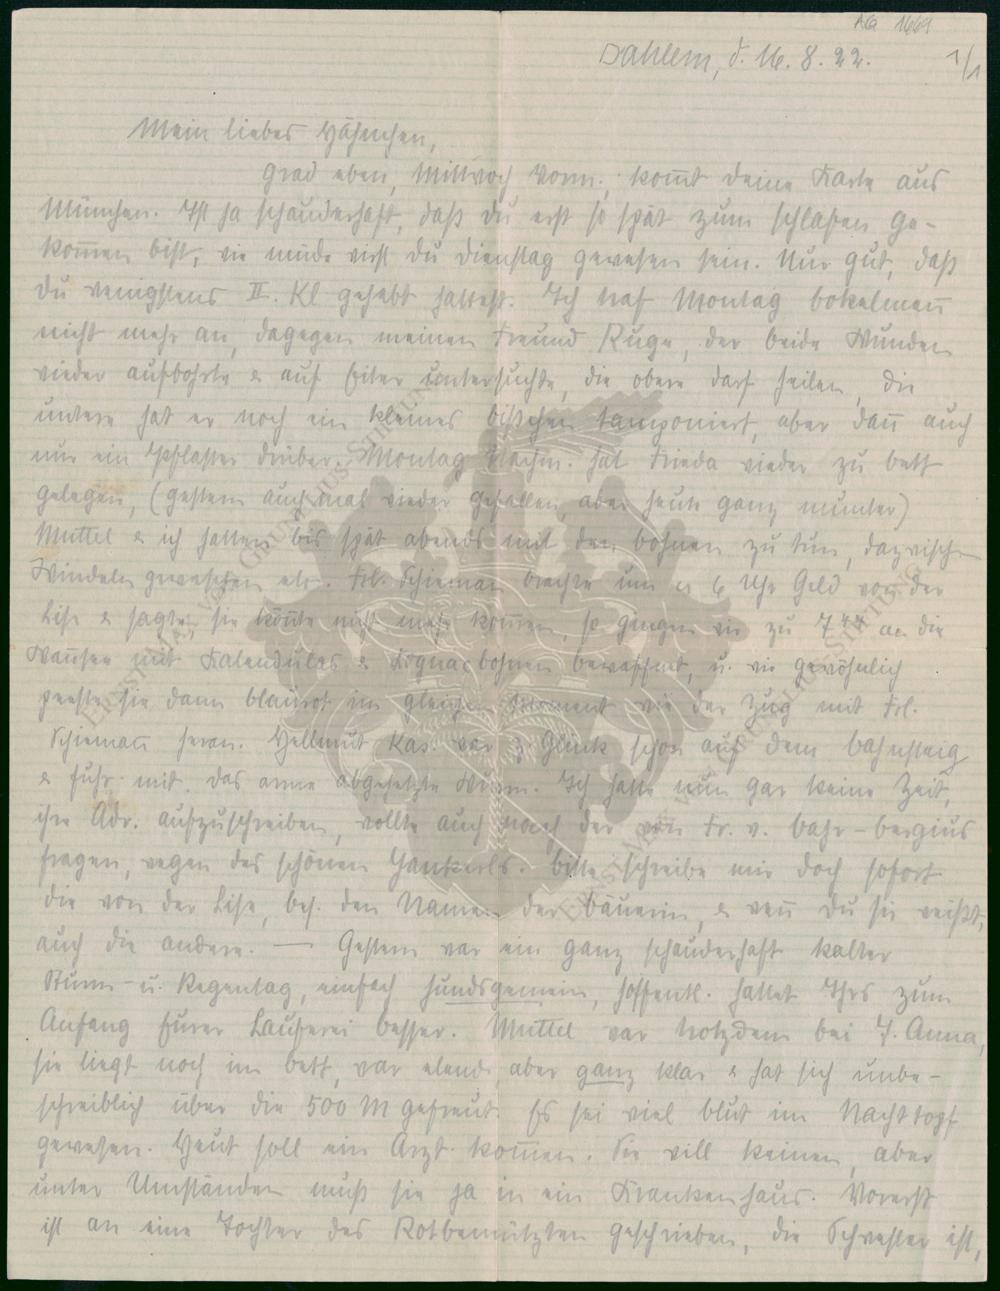 AG 1669
Dahlem, d. 16. 8. 22.
1/1
Mein liebes Hähnchen,
Grad eben, Mittwoch Vorm., kom̅t deine Karte aus
München. Ist ja schauderhaft, daß du erst so spät zum schlafen ge-
kom̅en bist, wie müde wirst du Dienstag gewesen sein. Nur gut, daß
du wenigstens II. Kl gehabt hattest. Ich traf Montag Bokelman̅
nicht mehr an, dagegen meinen Freund Ruge, der beide Wunden
wieder aufbohrte & auf Eiter untersuchte, die obere darf heilen, die
untere hat er noch ein kleines bißchen tamponiert, aber dan̅ auch
nur ein Pflaster drüber. Montag Nachm. hat Frieda wieder zu bett
gelegen, (gestern auch mal wieder gefallen aber heute ganz munter)
Muttel & ich hatten bis spät abends mit den bohnen zu tun, dazwischen
Windeln gewaschen etc. Frl. Schieman̅ brachte um 6 Uhr Geld von der
Lise & sagte, sie kön̅te nicht mehr kom̅en, so gingen wir zu 7⁴⁴ an die
Wan̅see mit Kalendulas & Kognacbohnen bewaffnet, u. wie gewöhnlich
peeste sie dann blaurot im gleichen Moment wie der Zug mit Frl.
Schieman̅ heran. Hellmut Kas. war z. Glück schon auf dem bahnsteig
& fuhr mit, das arme abgehetzte Wurm. Ich hatte nun gar keine Zeit,
ihre Adr. aufzuschreiben, wollte auch nach der von Fr. v. bahr-bergius
fragen, wegen des schönen Hankerls. bitte schreibe mir doch sofort
die von der Lise, bes. den Namen der bäuerin, & wen̅ du sie weißt,
auch die andere. — Gestern war ein ganz schauderhaft kalter
Sturm- u. Regentag, einfach hundsgemein, hoffentl. hattet Ihrs zum
Anfang Eurer Lauferei besser. Muttel war trotzdem bei T. Anna,
sie liegt noch im bett, war elend, aber ganz klar & hat sich unbe-
schreiblich über die 500 M gefreut. Es sei viel blut im Nachttopf
gewesen. Heut soll ein Arzt kom̅en. Sie will keinen, aber
unter Umständen muß sie ja in ein Krankenhaus. Vorerst
ist an eine Tochter des Rotbemützten geschrieben, die Schwester ist,